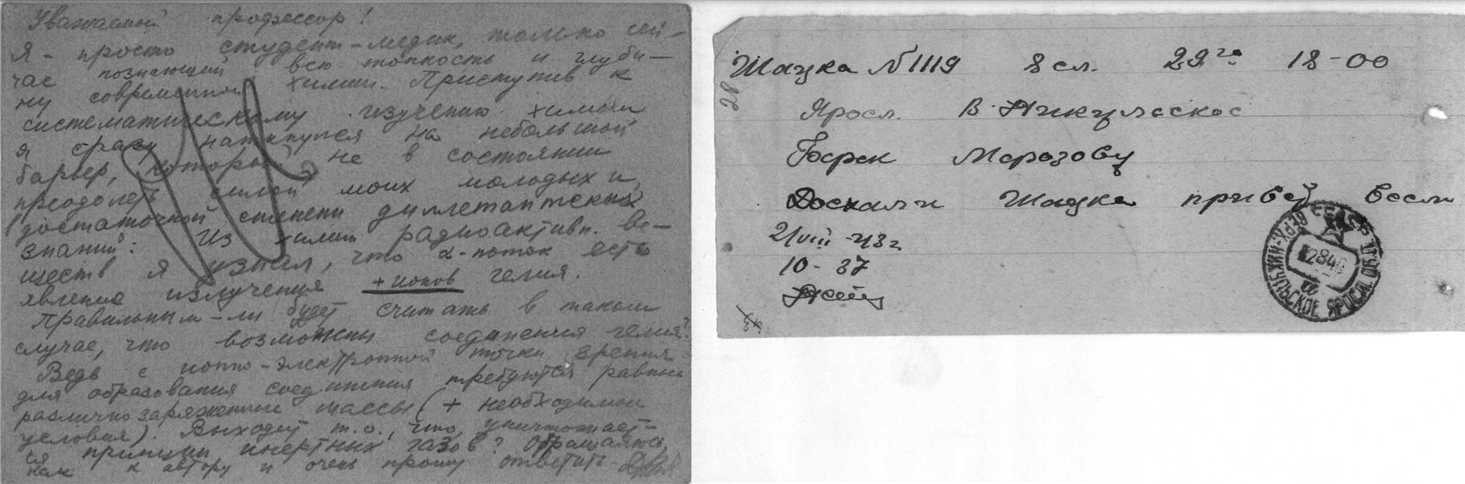 Уважаемый профессор!
Я - просто студент-медик, только сей-
час познающий всю тонкость и глуби-
ну современной химии. Приступив к
систематическому изучению химии
я сразу наткнулся на небольшой
барьер, который не в состоянии
преодолеть силой моих молодых и
достаточной степени диллетантских
знаний: Из химии радиоактивн. ве-
ществ я узнал, что α-поток есть
явление излучения + ионов гелия.
Правильным-ли будет считать в таком
случае, что возможны соединения гелия?
Ведь с ионно-электронной точки зрения
для образования соединения требуются равные
различно заряженные массы (+ необходимые
условия). Выходит т.о., что уничтожает-
ся принцип инертных газов? Обращаюсь
к автору и очень прошу ответить
Шацка №1119 8 сл. 29го 18-00
Яросл. В. Никульское
Борок Морозову
Шацка привет
21/VIII-43г
10-37